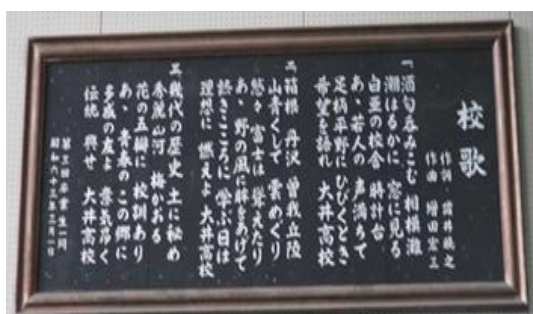 校歌
作詞・
作曲 増田宏三
一 酒匂呑みこむ 相模灘
潮はるかに 窓に見る
白亜の校舎 時計台
あゝ若人の 声満ちて
足柄平野に ひびくとき
希望を語れ 大井高校
二 箱根 丹沢 曽我丘陵
山青くして 雲めぐり
悠々 富士は 聳えたり
あゝ 野の風に 眸をあげて
熱きこころに 学ぶ日は
理想に 燃えよ 大井高校
三 幾代の歴史 土に秘め
秀麗山河 梅かおる
花の五瓣に 校訓あり
あゝ 青春の この郷に
多感の友よ 意気昂く
伝統 興せ 大井高校
第三回卒業生一同
昭和六十三年三月一日